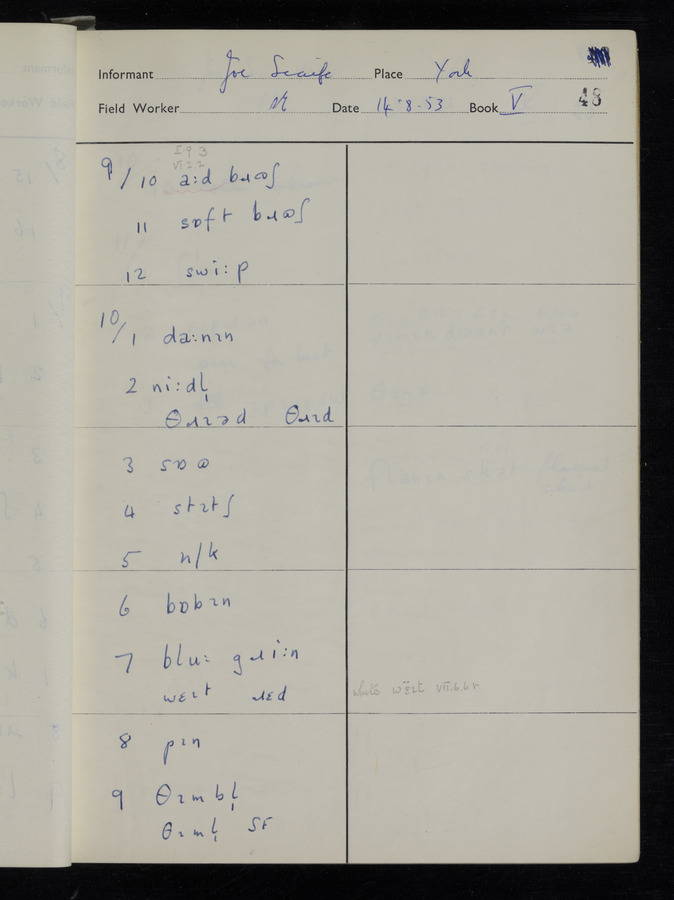 Informant Joe Scaife Place York
Field Worker Date 14-8-53 Book V 48
I 9 3
VI 2 2
9/10 a:d bɹʊʃ
11 sɒft bɹʊʃ
12 swi:p
10/1 da:nɪn
2 ni:dl̩
θɹɪəd θɹɪd
3 sɒʊ
4 stɪtʃ
5 n/k
6 bɒbɪn
7 blu: gɹi:n
wɛɪt ɹɛd
white wɛ̈ɪt VII.6.6r
8 pɪn
9 θɪmbl̩
θɪml̩ SF